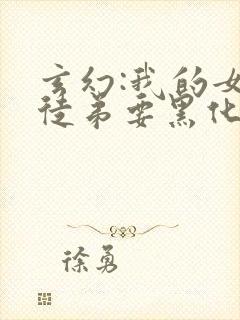 玄幻:我的女
徒弟要黑化
徐勇